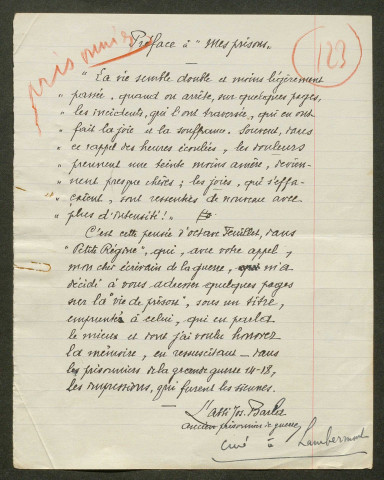 prisonnier
Préface à "Mes prisons"
123
"La vie semble double et moins légèrement
" passée, quand on arrête, sur quelques pages,
" les incidents, qui l'ont traversée, qui en ont
" fait la joie et la souffrance. Souvent, dans
" ce rappel des heures écoulées, les douleurs
" prennent une teinte moins amère, devien-
" nent presque chères; les joies, qui s'effa-
" caient, sont ressenties de nouveau avec
" plus d'intensité!"
C'est cette pensée d'Octave Feuillet, dans
"Petite Régine", qui, avec votre appel,
mon cher écrivain de la guerre, m'a
décidé à vous adresser quelques pages
sur la "vie de prison", sous un titre,
emprunté à celui, qui en parla
le mieux et dont j'ai voulu honorer
la mémoire, en ressuscitant - dans
les prisonniers de la grande guerre 14-18,
les impressions, qui furent les siennes.
L'abbé Jos.
ancien prisonnier de guerre,
curé à Lambermont